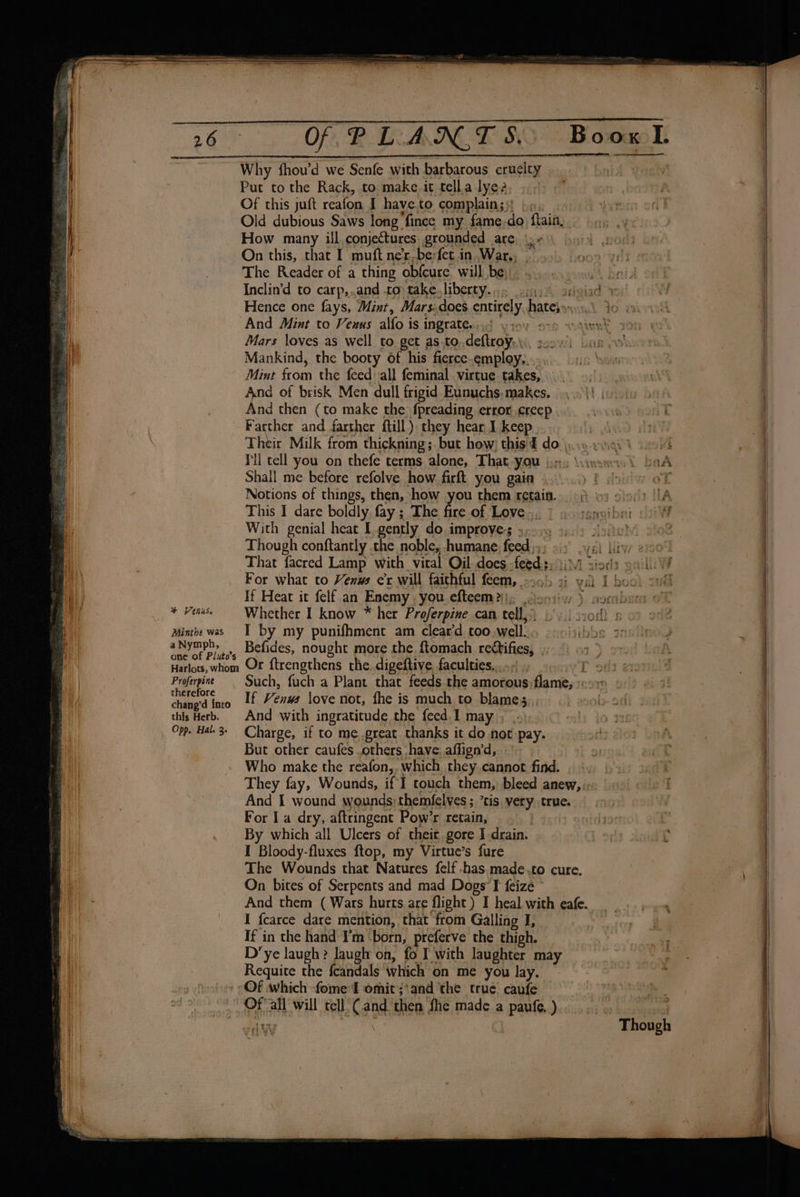 26 Of PLANTS. Book I.
Why ſhou'd we Senſe with barbarous cruelty
Put to the Rack, to make it tell a lye?
Of this juſt reaſon I have to complain;
Old dubious Saws long ſince my fame do ſtain,
How many ill conjectures grounded are
On this, that I muſt ne'r be ſet in War,
The Reader of a thing obſcure will be
Inclin'd to carp, and to take liberty.
Hence one ſays, Mint, Mars does entirely hate,
And Mint to Venus alſo is ingrate.
Mars loves as well to get as to deſtroy
Mankind, the booty of his fierce employ.
Mint from the ſeed all ſeminal virtue takes,
And of brisk Men dull frigid Eunuchs makes.
And then (to make the ſpreading error creep
Farther and farther ſtill) they hear I keep
Their Milk from thickning; but how this I do
I'll tell you on theſe terms alone, That you
Shall me before reſolve how firſt you gain
Notions of things, then, how you them retain.
This I dare boldly ſay; The fire of Love
With genial heat I gently do improve;
Though conſtantly the noble, humane ſeed,
That ſacred Lamp with vital Oil does feed;
For what to Venus e'r will faithful ſeem,
If Heat it ſelf an Enemy you eſteem?
Whether I know * her Proſerpine can tell,
I by my puniſhment am clear'd too well.
Beſides, nought more the ſtomach rectifies,
Or ſtrengthens the digeſtive faculties.
Such, ſuch a Plant that feeds the amorous flame,
If Venus love not, ſhe is much to blame;
And with ingratitude the ſeed I may
Charge, if to me great thanks it do not pay.
But other cauſes others have aſſign'd,
Who make the reaſon, which they cannot find.
They ſay, Wounds, if I touch them, bleed anew,
And I wound wounds themſelves; 'tis very true.
For I a dry, aſtringent Pow'r retain,
By which all Ulcers of their gore I drain.
I Bloody-fluxes ſtop, my Virtue's ſure
The Wounds that Natures ſelf has made to cure.
On bites of Serpents and mad Dogs I ſeize
And them (Wars hurts are ſlight) I heal with eaſe.
I ſcarce dare mention, that from Galling I,
If in the hand I'm born, preſerve the thigh.
D'ye laugh? laugh on, ſo I with laughter may
Requite the ſcandals which on me you lay.
Of which ſome I omit; and the true cauſe
Of all will tell (and then ſhe made a pauſe.)
Though
* Venus.
Minthe was
a Nymph,
one of Pluto's
Harlots, whom
Proſerpine
therefore
chang'd into
this Herb.
Opp. Hal. 3.